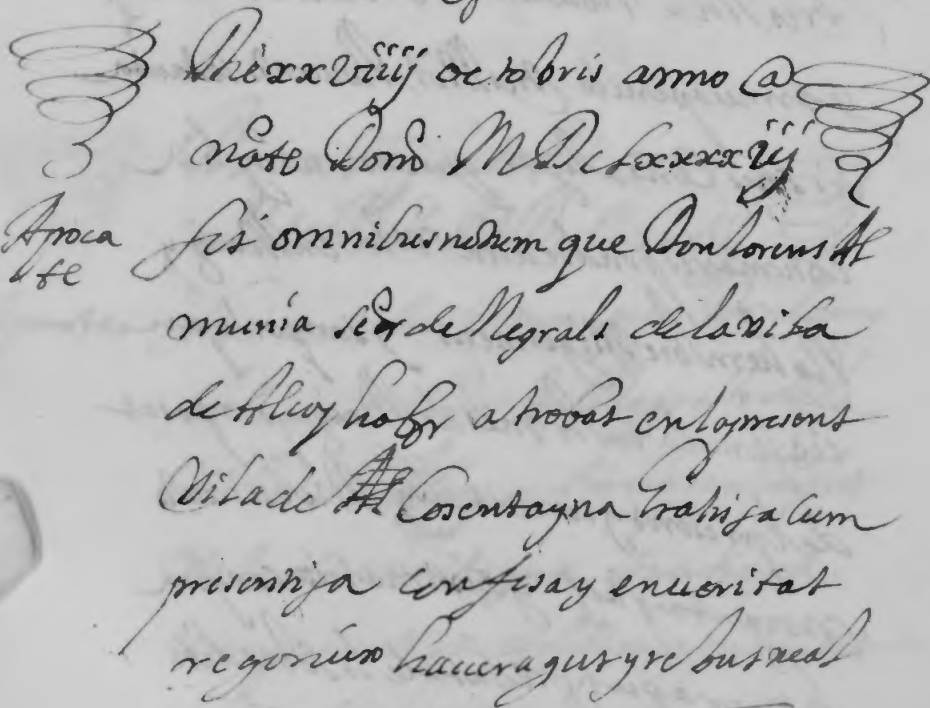 Die xxviiij octobris anno @
nate Dom̃ MDclxxxxiij
Apoca
te
sit omnibus notum que Don Lorens Al
munia señor de Negrals de la vila
de Alcoy habr atrobat en la present
Vila de Cosentayna Gratis ga cum
presentiga confesa y en veritat
regoneix haver agut y rebut real